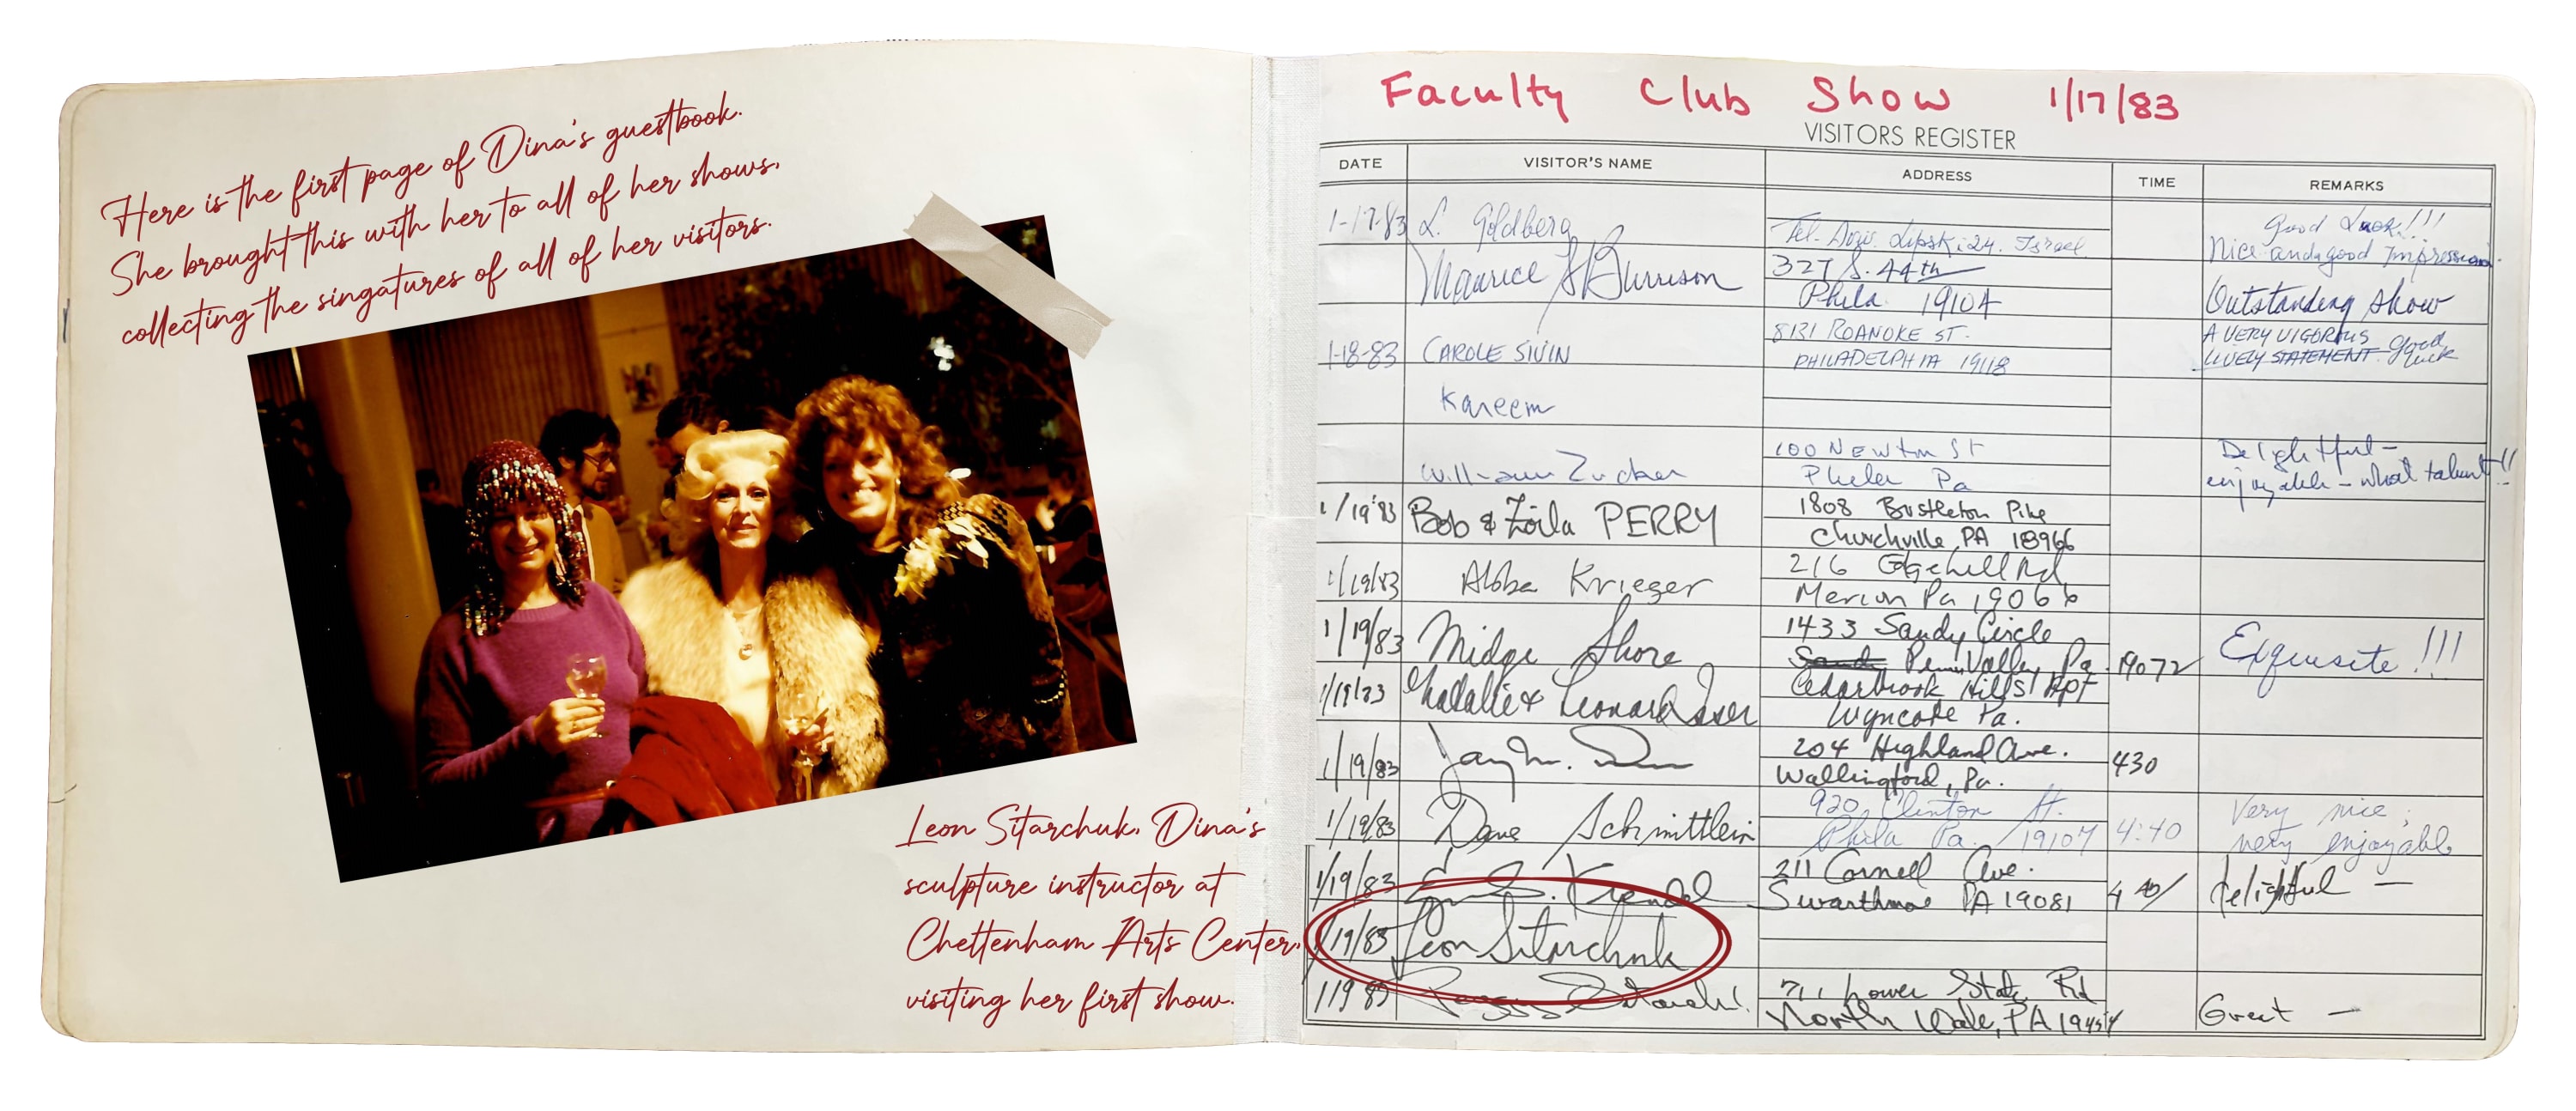 Here is the first page of Dina's guestbook.
She brought this with her to all of her shows,
collecting the singatures of all of her visitors.
Leon Sitarchuk, Dina's
sculpture instructor at
Cheltenham Arts Center,
visiting her first show.
Faculty Club Show 1/17/83
VISITORS REGISTER
DATE VISITOR'S NAME ADDRESS TIME REMARKS
1-17-83 L. Goldberg Tel-Aviv. Lipski 24. Israel Good Luck!!!
Nice and good Impression.
Maurice S Burrison 327 S. 44th
Phila 19104 Outstanding show
1-18-83 CAROLE SIVIN 8131 ROANOKE ST. A VERY VIGOROUS
PHILADELPHIA 19118 LIVELY STATEMENT good luck
Kareem
William Zucker 100 Newton St Delightful -
Phila Pa enjoyable - what talent!!
1/19/83 Bob & Zoila PERRY 1808 Bustleton Pike
Churchville, PA 18966
1/19/83 Abba Krieger 216 Edgehill Rd
Merion Pa 19066
1/19/83 Midge Shore 1433 Sandy Circle Exquisite!!!
Penn Valley, Pa. 19072
1/19/83 Natalie & Leonard Cedarbrook Hills Apt
Wyncote Pa.
1/19/83 204 Highland Ave. 430
Wallingford, Pa.
1/19/83 Dave Schmittlein 920 Clinton St. 4:40 Very nice;
Phila Pa. 19107 very enjoyable
1/19/83 211 Cornell Ave. delightful —
Swarthmore PA 19081 4 40
1/19/83 Leon Sitarchuk
1 19 83 Peggy 711 Lower State Rd
North Wales, PA 19454 Great —